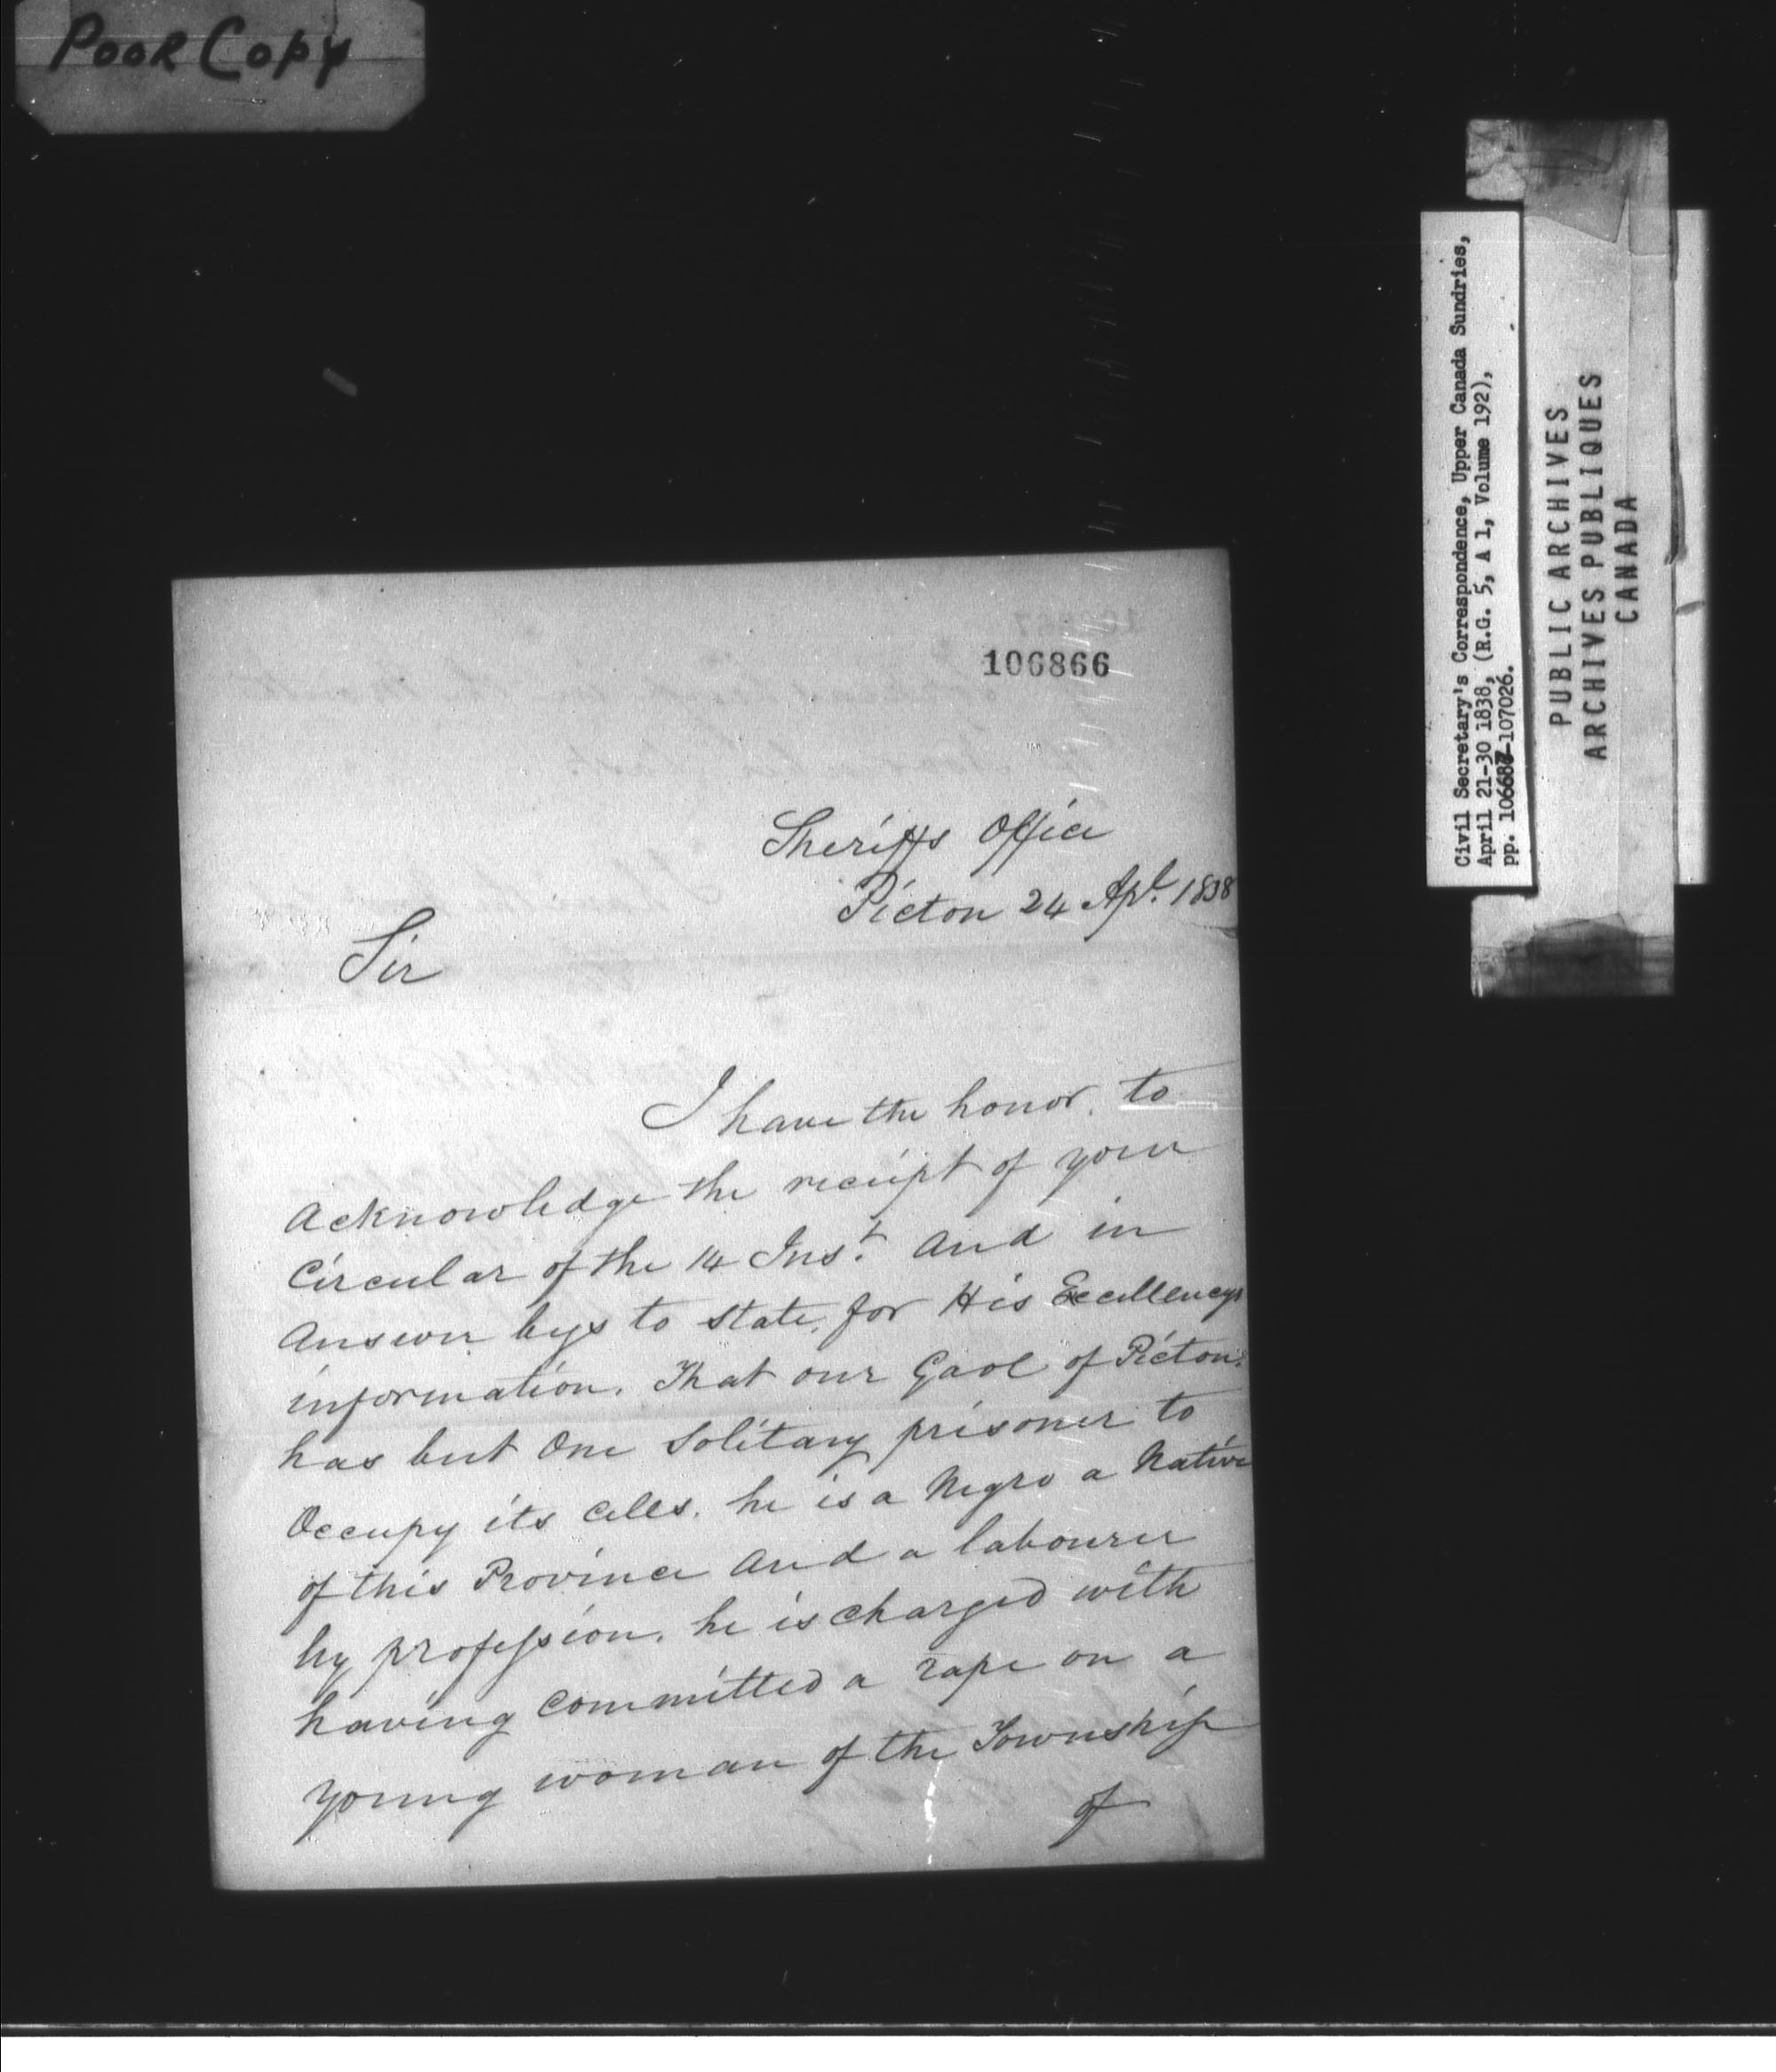 Poor Copy
106866
Sheriffs Office
Picton 24 Apl. 1838
Sir
I have the honor to
acknowledge the receipt of your
Circular of the 14 Inst. and in
answer begs to state, for His Excellencys
information. That our Gaol of Picton
has but One Solitary prisoner to
Occupy its cells. he is a Negro a Native
of this Province and a labourer
by profession. he is charged with
having committed a rape on a
young woman of the Township
of
Civil Secretary's Correspondence, Upper Canada Sundries,
April 21-30 1838, (R.G. 5, A 1, Volume 192),
pp. 106687-107026.
PUBLIC ARCHIVES
ARCHIVES PUBLIQUES
CANADA